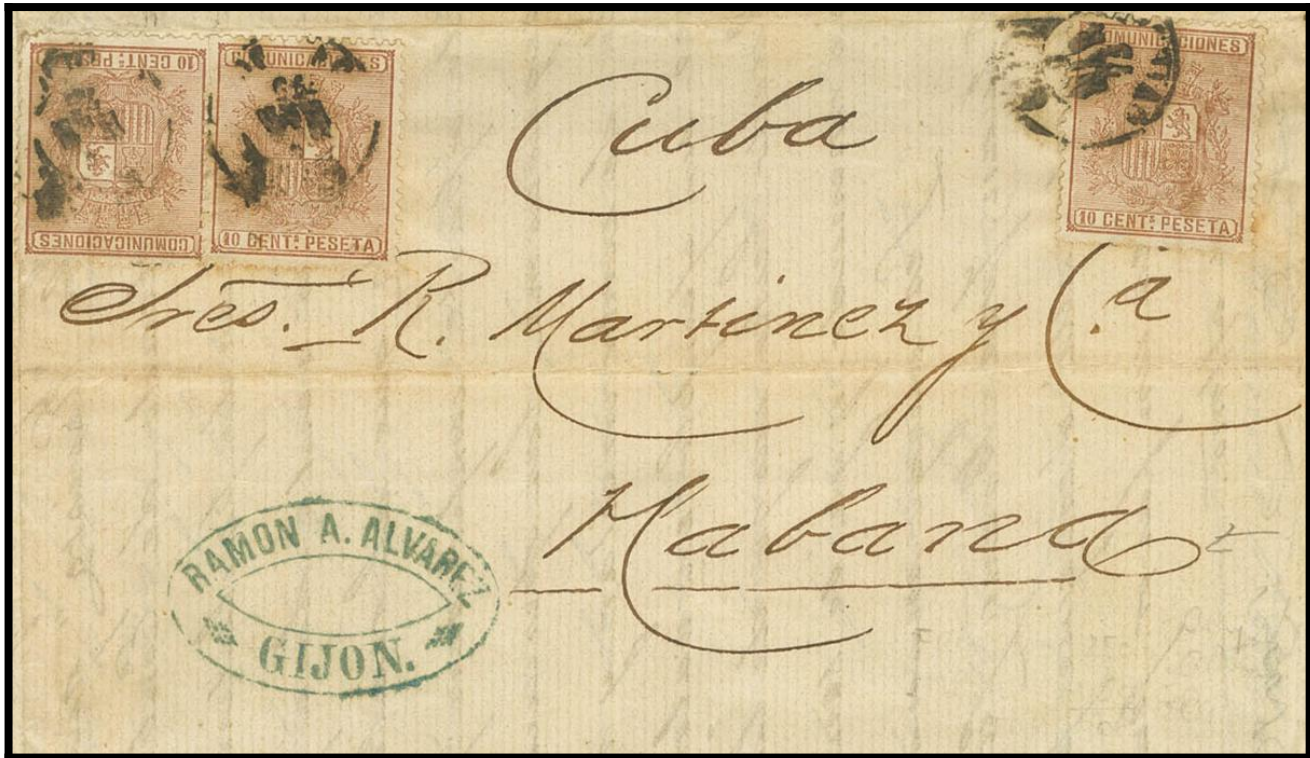 COMUNICACIONES
10 CENT.ˢ PE
COMUNICACIONES
10 CENT.ˢ PESETA
COMUNICACIONES
10 CENT.ˢ PESETA
Cuba
Sres. R. Martinez y C.ª
Habana
RAMON A. ALVAREZ
GIJON.